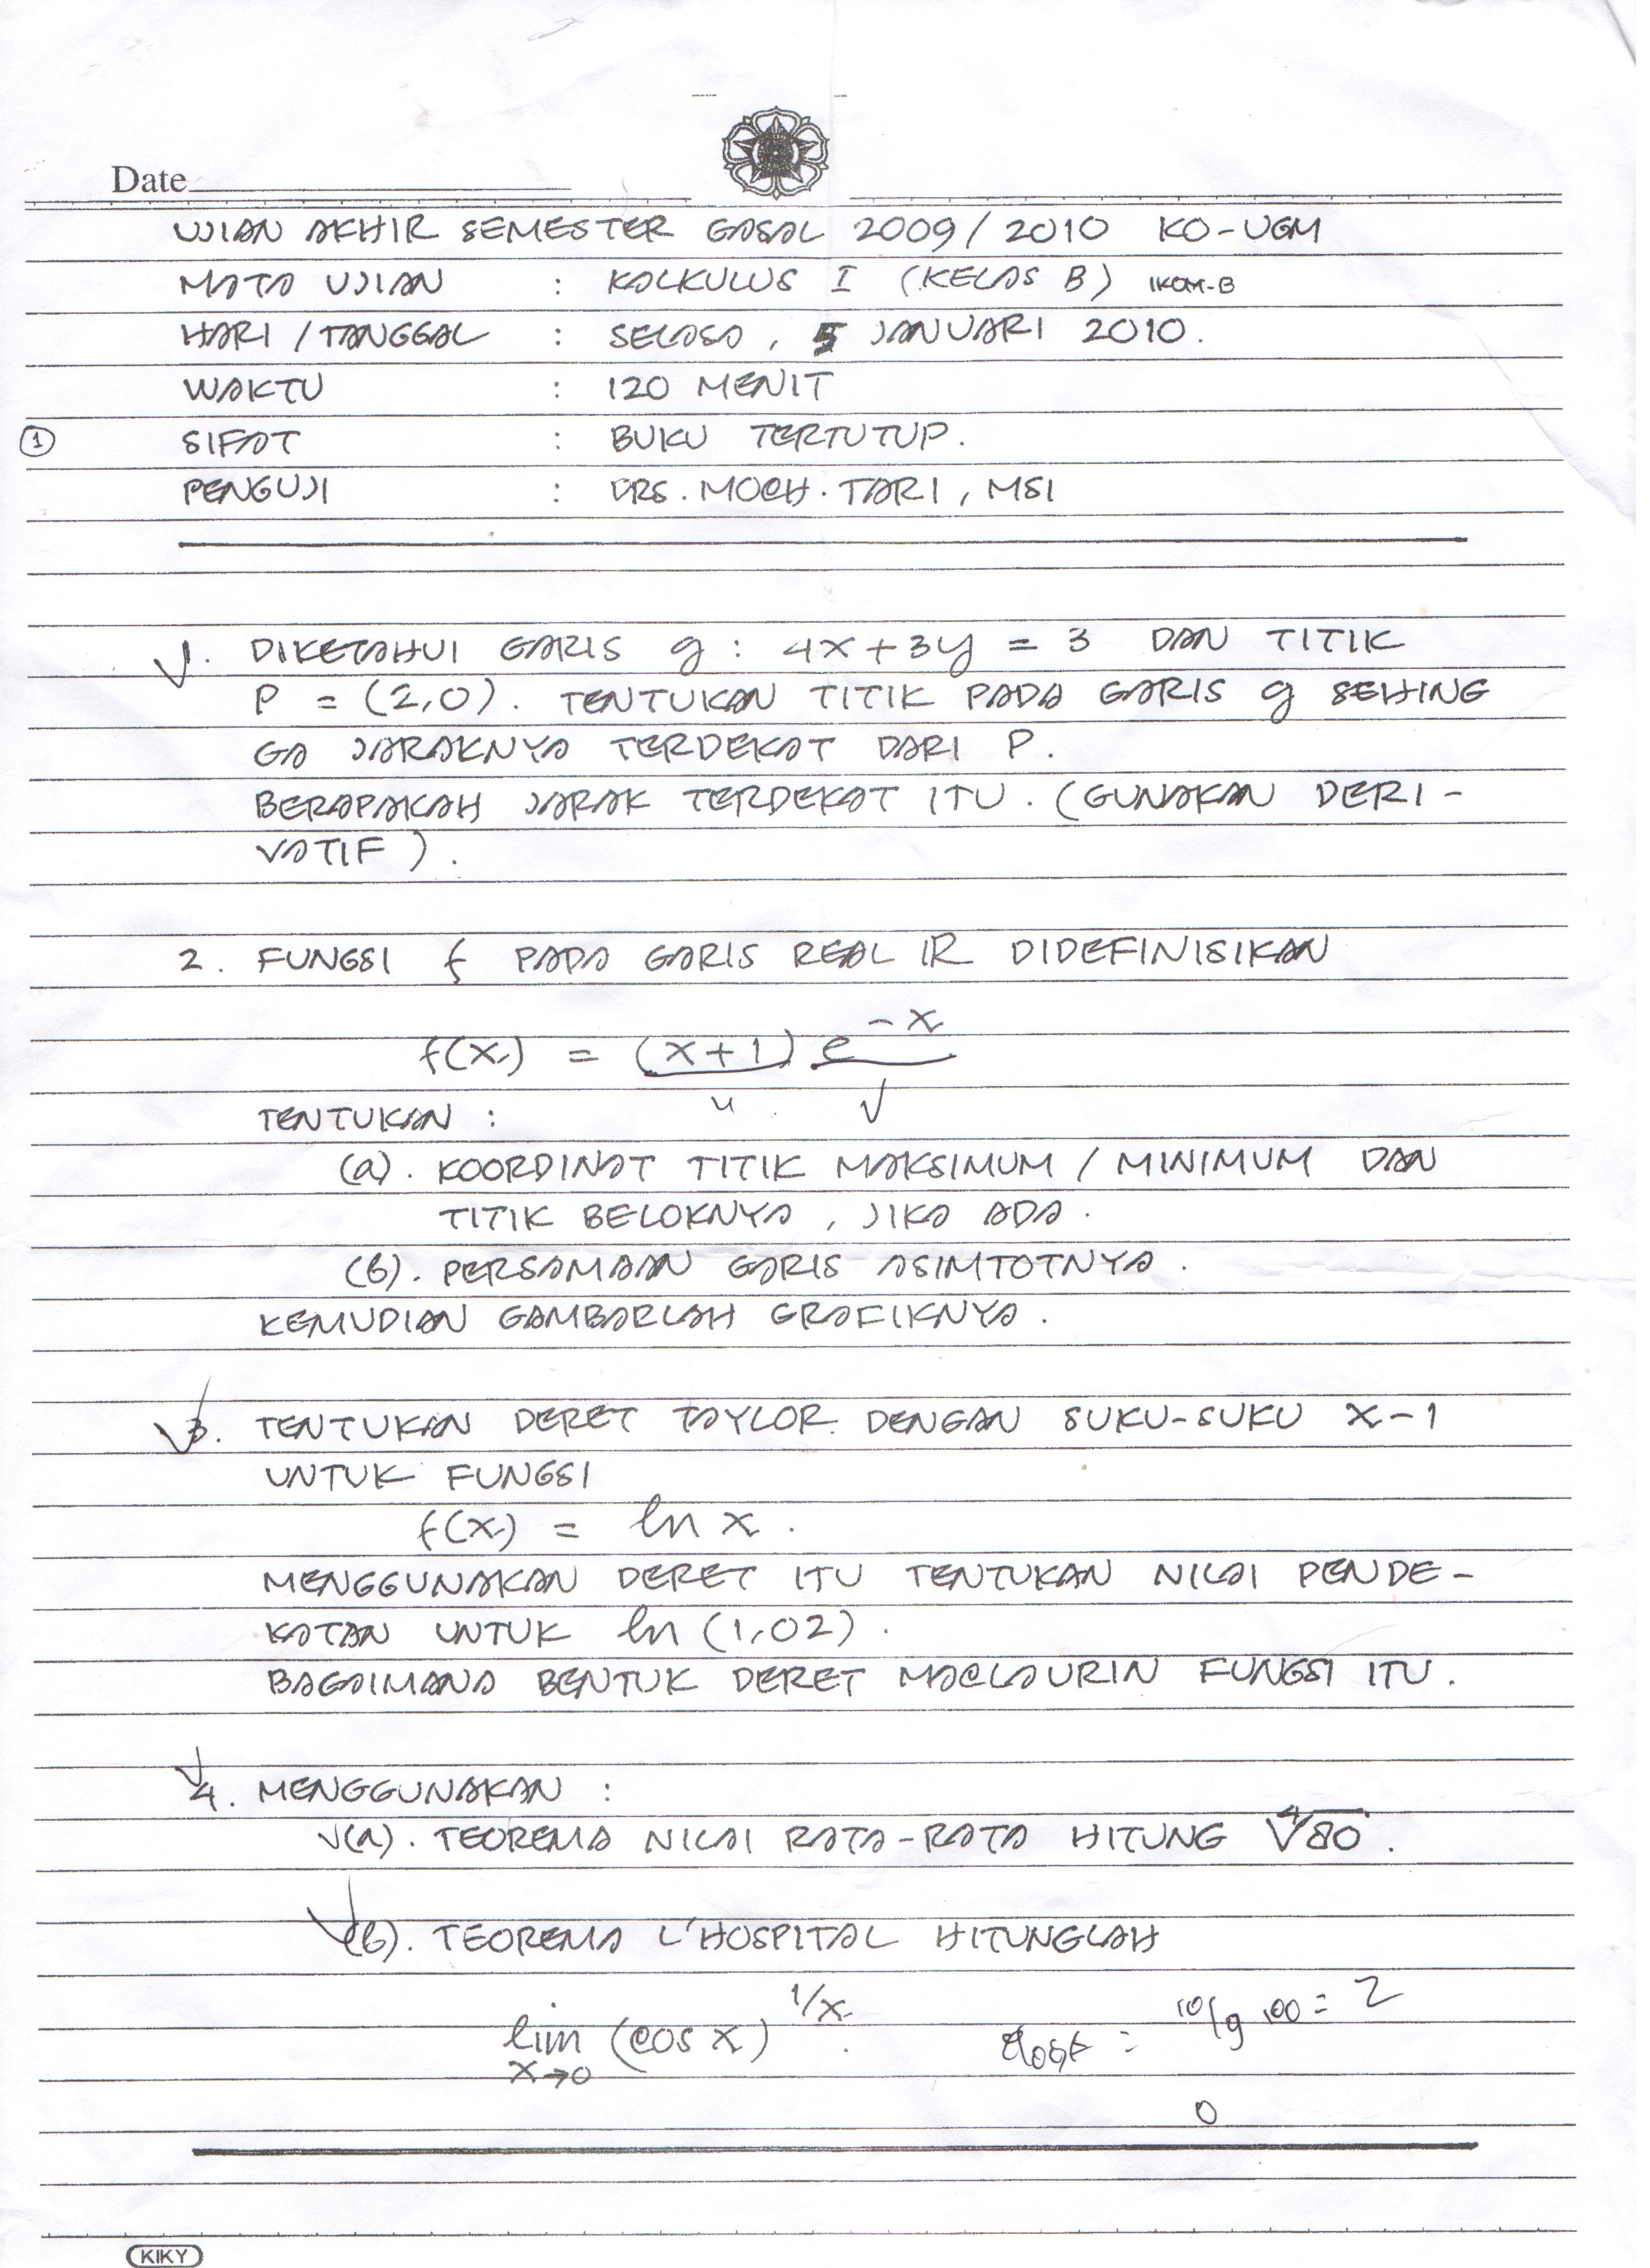 Date
UJIAN AKHIR SEMESTER GASAL 2009/2010 KO-UGM
MATA UJIAN : KALKULUS I (KELAS B) IKOM-B
HARI / TANGGAL : SELASA, 5 JANUARI 2010.
WAKTU : 120 MENIT
① SIFAT : BUKU TERTUTUP.
PENGUJI : DRS. MOCH. TARI, MSI
1. DIKETAHUI GARIS g : 4x+3y = 3 DAN TITIK
P = (2,0). TENTUKAN TITIK PADA GARIS g SEHING
GA JARAKNYA TERDEKAT DARI P.
BERAPAKAH JARAK TERDEKAT ITU. (GUNAKAN DERI-
VATIF).
2. FUNGSI f PADA GARIS REAL IR DIDEFINISIKAN
f(x) = (x+1) e^{-x}
u v
TENTUKAN :
(a). KOORDINAT TITIK MAKSIMUM / MINIMUM DAN
TITIK BELOKNYA, JIKA ADA.
(b). PERSAMAAN GARIS ASIMTOTNYA.
KEMUDIAN GAMBARLAH GRAFIKNYA.
3. TENTUKAN DERET TAYLOR DENGAN SUKU-SUKU x-1
UNTUK FUNGSI
f(x) = ln x.
MENGGUNAKAN DERET ITU TENTUKAN NILAI PENDE-
KATAN UNTUK ln (1,02).
BAGAIMANA BENTUK DERET MACLAURIN FUNGSI ITU.
4. MENGGUNAKAN :
√(a). TEOREMA NILAI RATA-RATA HITUNG ∜80.
(b). TEOREMA L'HOSPITAL HITUNGLAH
lim (cos x)^{1/x}.
x→0
= ¹⁰lg 100 = 2
0
KIKY